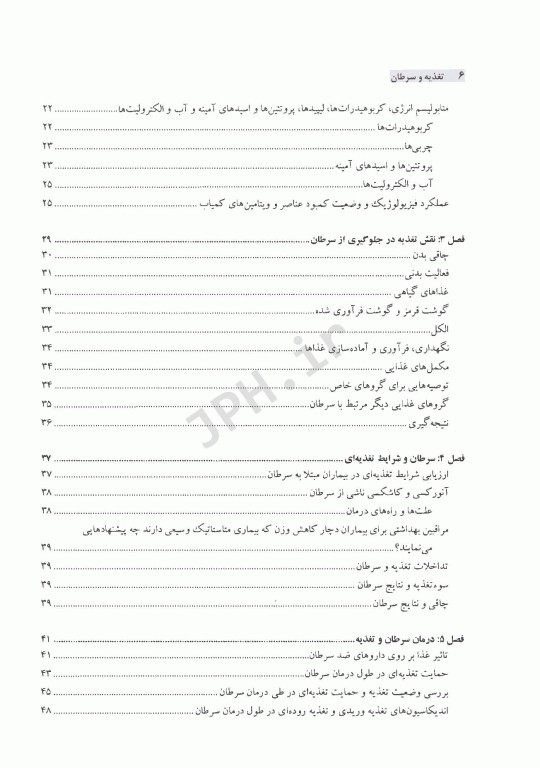 ۶ تغذیه و سرطان
متابولیسم انرژی، کربوهیدرات‌ها، لیپیدها، پروتئین‌ها و اسیدهای آمینه و آب و الکترولیت‌ها ........ ۲۲
کربوهیدرات‌ها ........ ۲۲
چربی‌ها ........ ۲۳
پروتئین‌ها و اسیدهای آمینه ........ ۲۳
آب و الکترولیت‌ها ........ ۲۵
عملکرد فیزیولوژیک و وضعیت کمبود عناصر و ویتامین‌های کمیاب ........ ۲۵
فصل ۳: نقش تغذیه در جلوگیری از سرطان ........ ۲۹
چاقی بدن ........ ۳۰
فعالیت بدنی ........ ۳۱
غذاهای گیاهی ........ ۳۱
گوشت قرمز و گوشت فرآوری شده ........ ۳۲
الکل ........ ۳۳
نگهداری، فرآوری و آماده‌سازی غذاها ........ ۳۴
مکمل‌های غذایی ........ ۳۴
توصیه‌هایی برای گروهای خاص ........ ۳۴
گروهای غذایی دیگر مرتبط با سرطان ........ ۳۵
نتیجه‌گیری ........ ۳۶
فصل ۴: سرطان و شرایط تغذیه‌ای ........ ۳۷
ارزیابی شرایط تغذیه‌ای در بیماران مبتلا به سرطان ........ ۳۷
آنورکسی و کاشکسی ناشی از سرطان ........ ۳۸
علت‌ها و راه‌های درمان ........ ۳۸
مراقبین بهداشتی برای بیماران دچار کاهش وزن که بیماری متاستاتیک وسیعی دارند چه پیشنهادهایی
می‌نمایند؟ ........ ۳۹
تداخلات تغذیه و سرطان ........ ۳۹
سوءتغذیه و نتایج سرطان ........ ۳۹
چاقی و نتایج سرطان ........ ۳۹
فصل ۵: درمان سرطان و تغذیه ........ ۴۱
تاثیر غذا بر روی داروهای ضد سرطان ........ ۴۱
حمایت تغذیه‌ای در طول درمان سرطان ........ ۴۳
بررسی وضعیت تغذیه و حمایت تغذیه‌ای در طی درمان سرطان ........ ۴۵
اندیکاسیون‌های تغذیه وریدی و تغذیه روده‌ای در طول درمان سرطان ........ ۴۸
JPH.ir